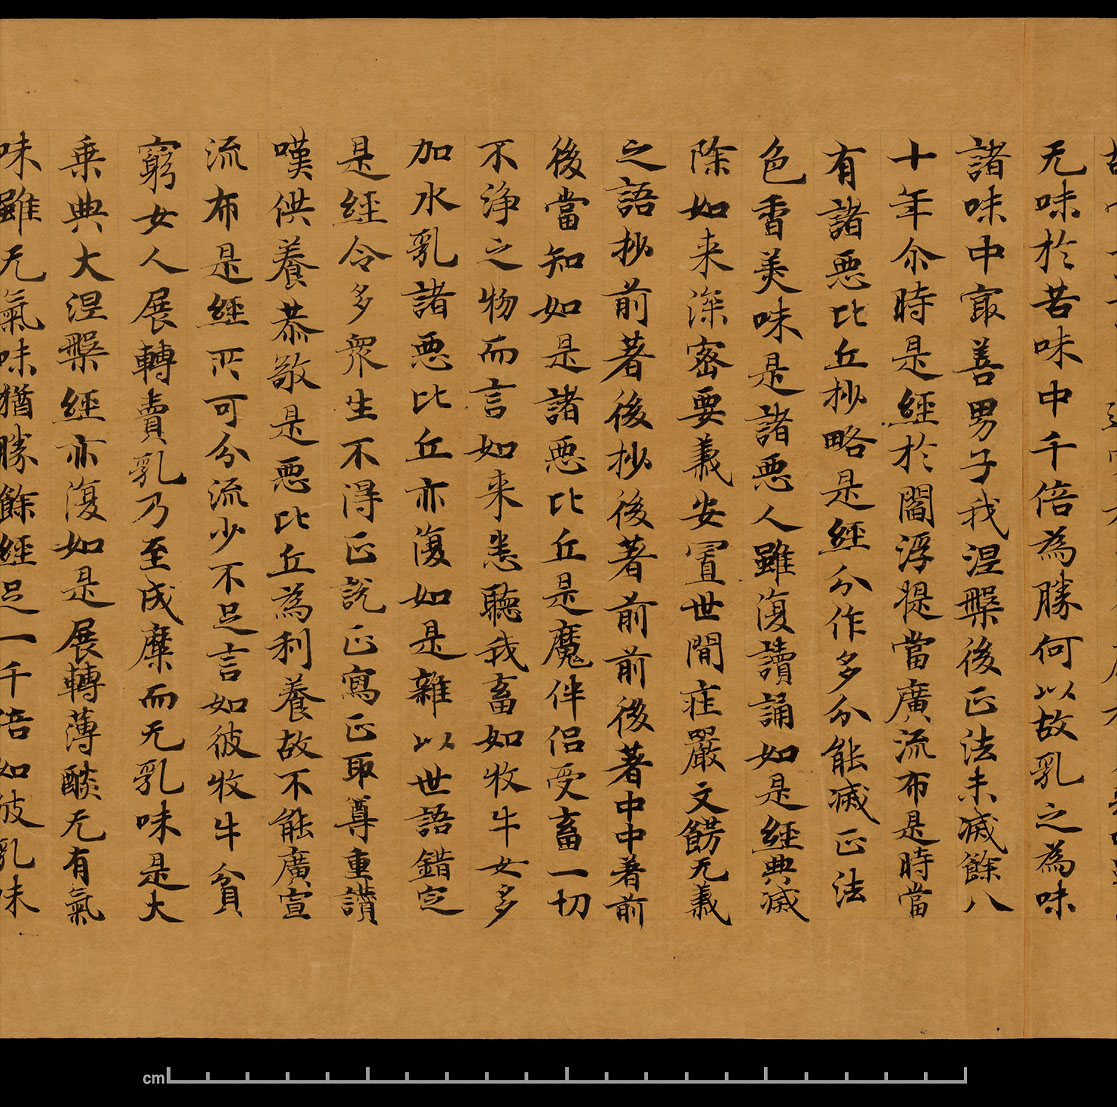 无味於苦味中千倍為勝何以故乳之為味
諸味中冣善男子我涅槃後正法未滅餘八
十年尒時是經於閻浮提當廣流布是時當
有諸惡比丘抄略是經分作多分能滅正法
色香美味是諸惡人雖復讀誦如是經典滅
除如来深密要義安置世間莊嚴文餝无義
之語抄前著後抄後著前前後著中中著前
後當知如是諸惡比丘是魔伴侣受畜一切
不淨之物而言如来悉聽我畜如牧牛女多
加水乳諸惡比丘亦復如是雜以世語錯定
是經令多衆生不得正說正寫正取尊重讚
嘆供養恭敬是惡比丘為利養故不能廣宣
流布是經所可分流少不足言如彼牧牛貧
窮女人展轉賣乳乃至成糜而无乳味是大
乗典大涅槃經亦復如是展轉薄无有氣
味雖无氣味猶勝餘經足一千倍如彼乳味
cm